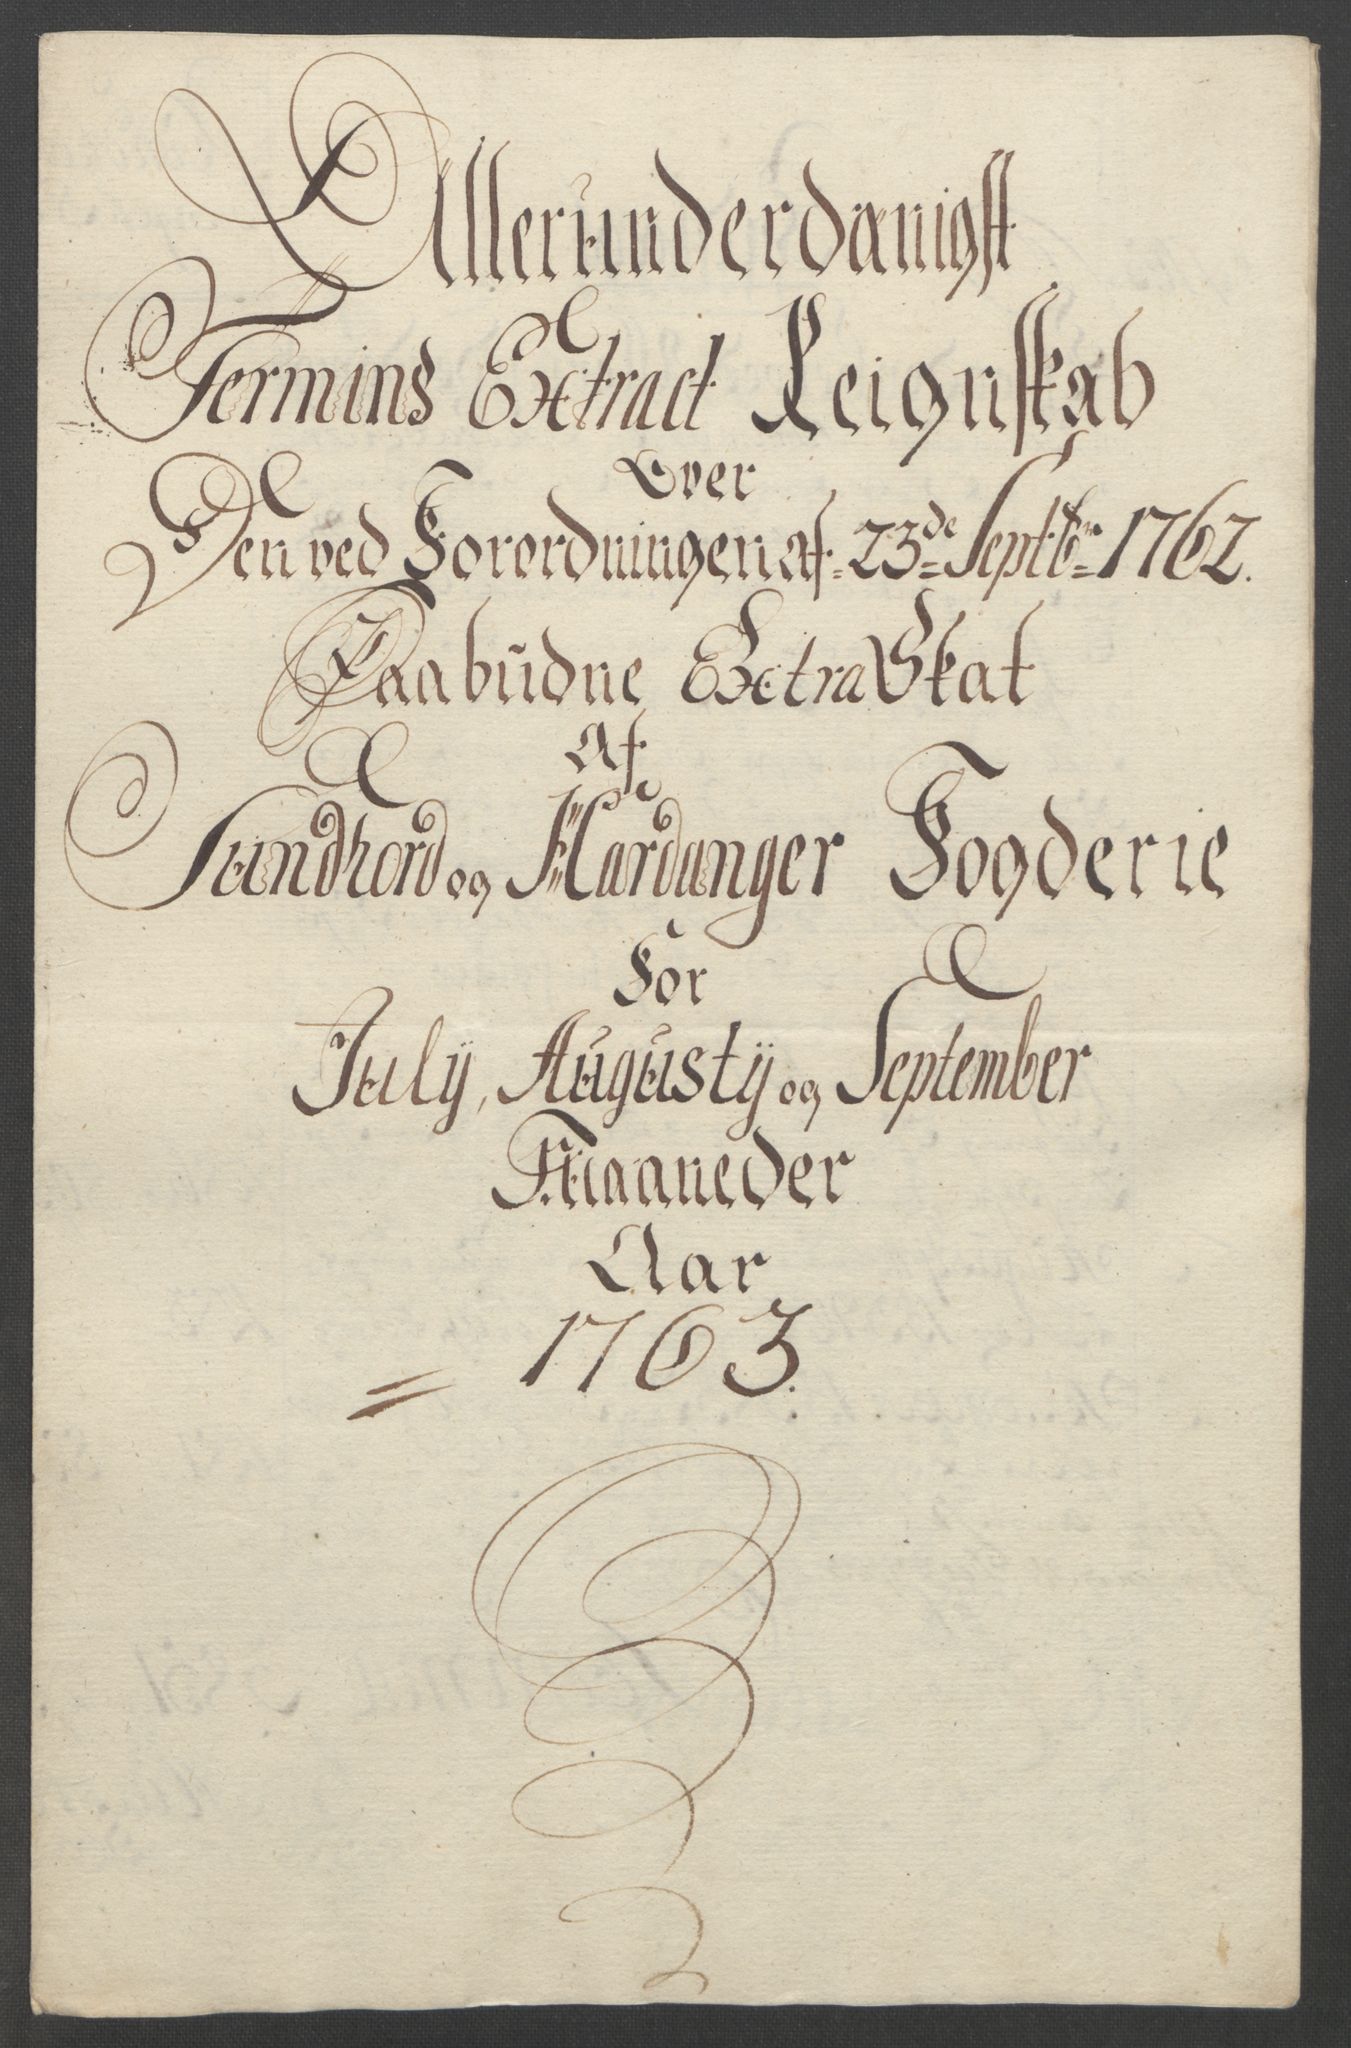 Allerunderdanigst
Termins Extract Reignskab
Over
Den ved Forordningen af 23de Septbr 1762.
Paabudne Extra Skat
Af
Sundhord og Hardanger Fogderie
For
July, Augusty og September
Maaneder
Aar
1763.